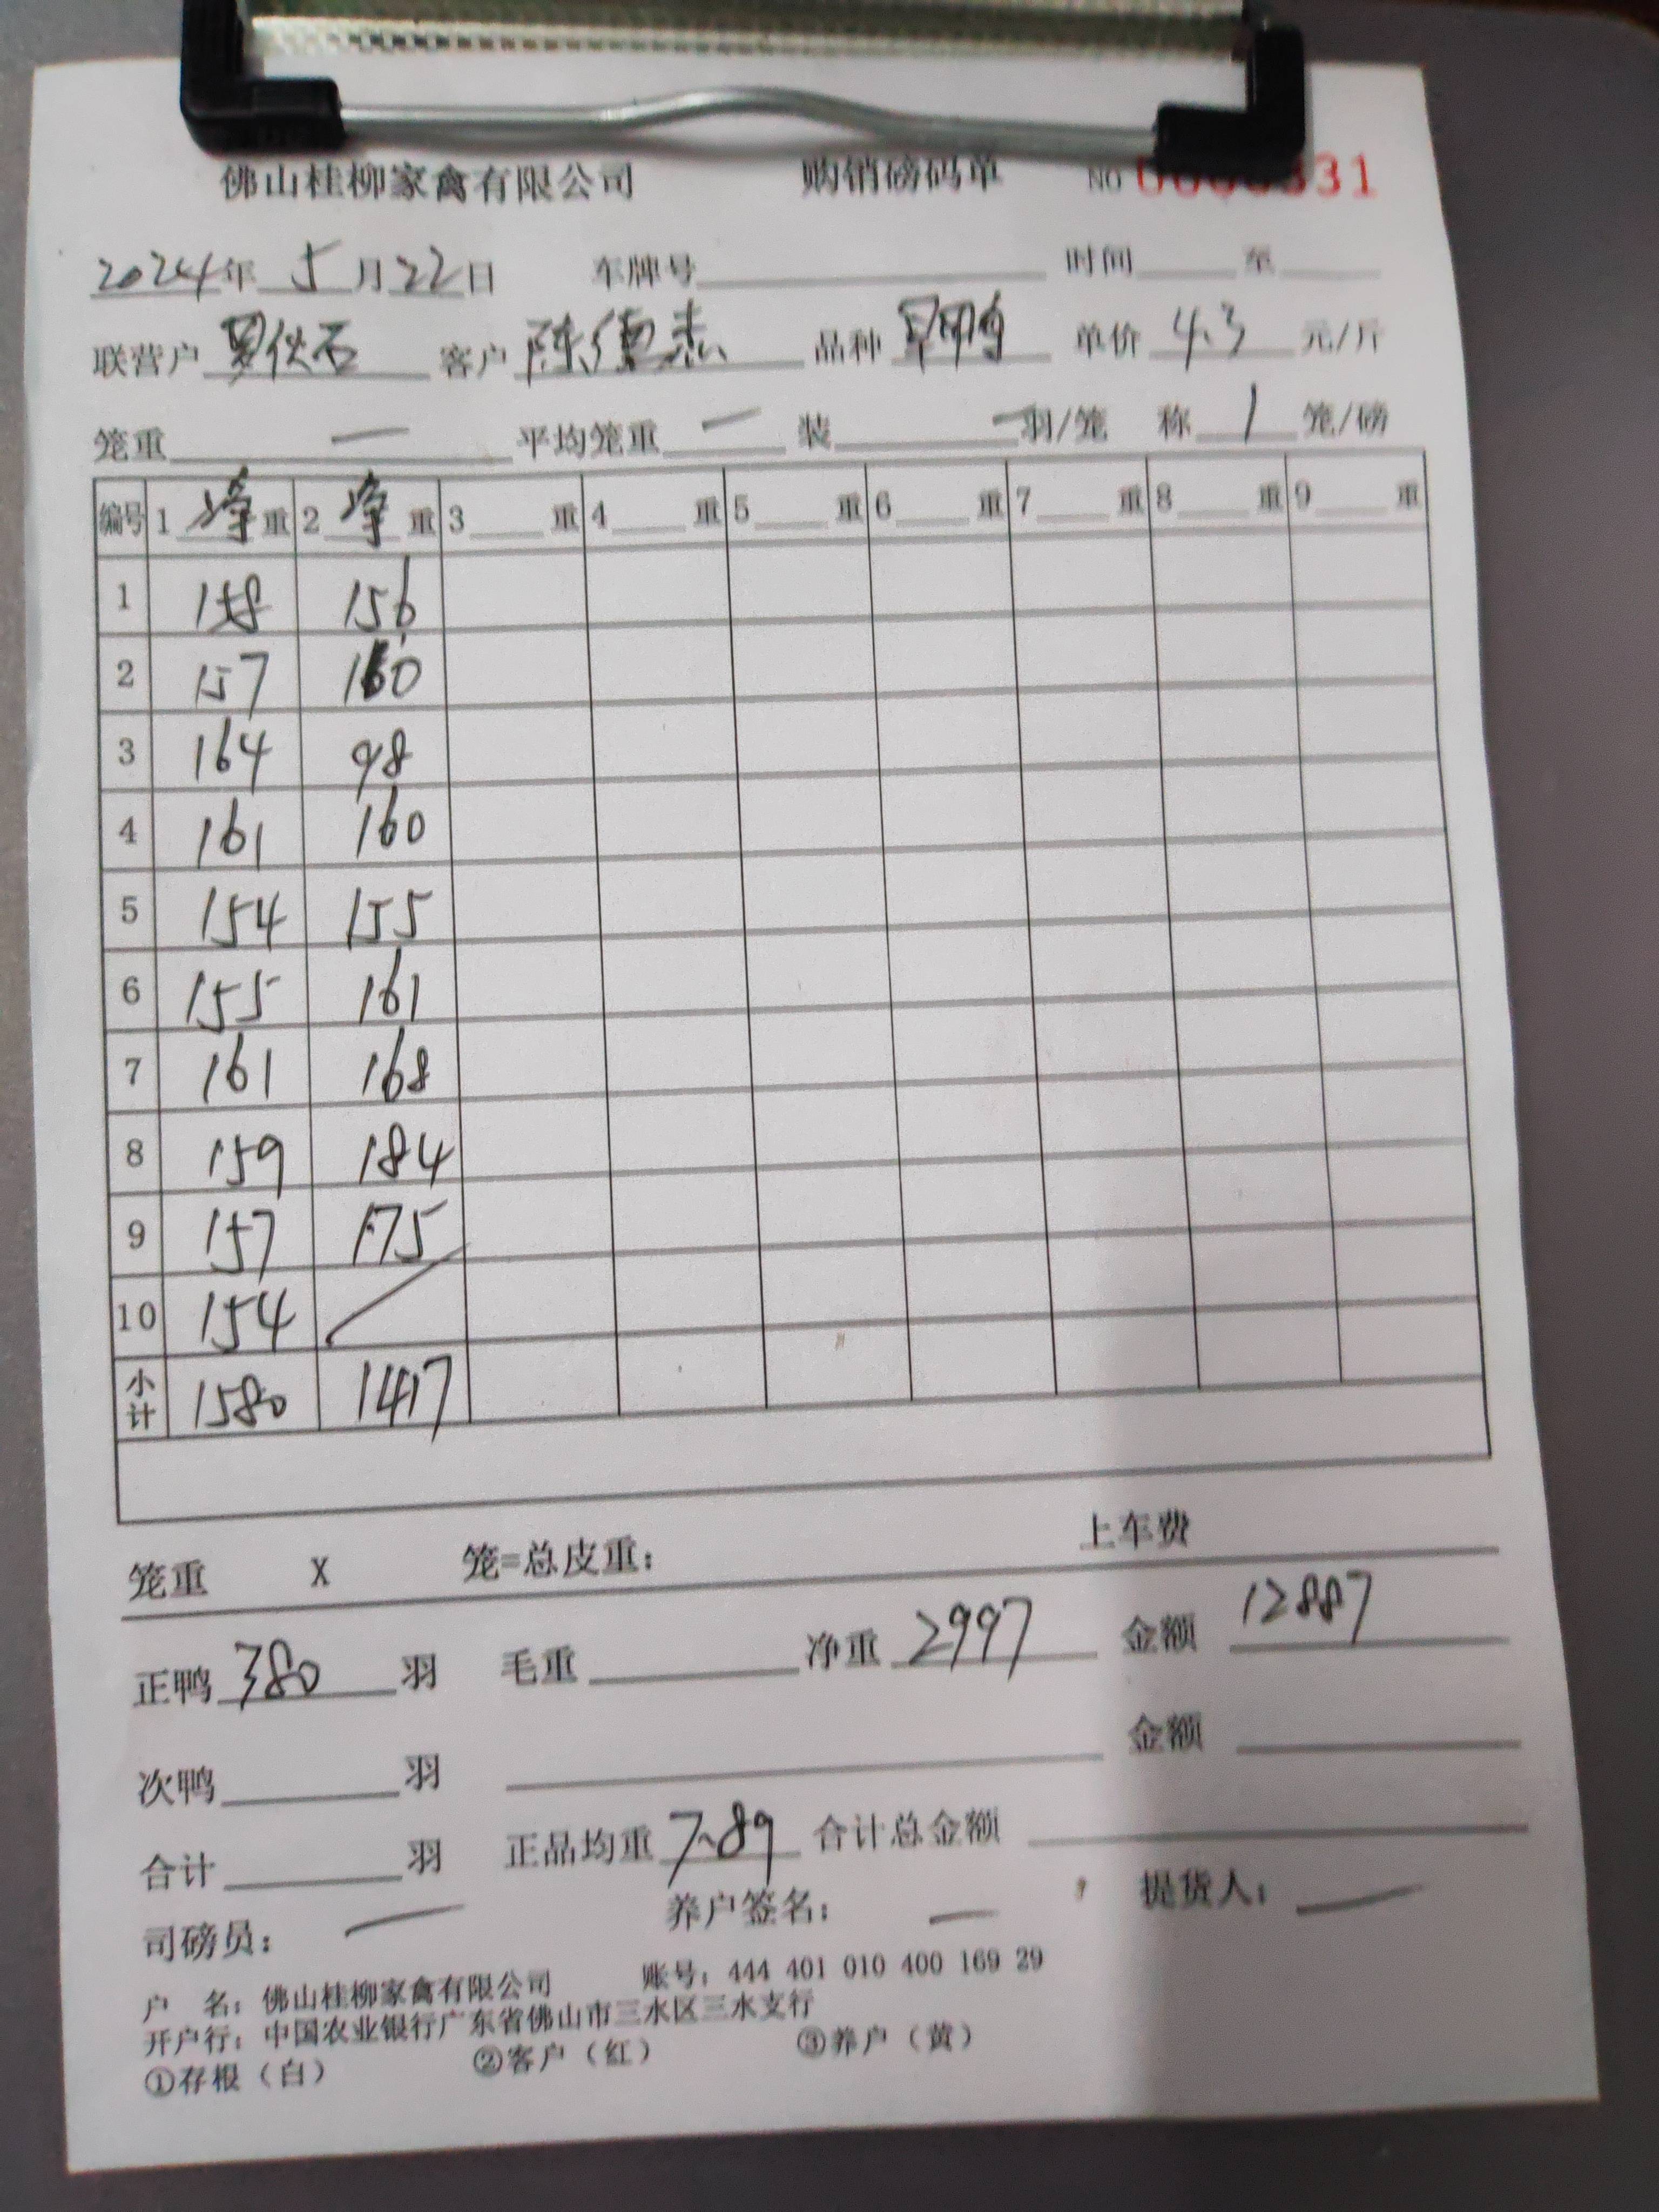 佛山桂柳家禽有限公司 购销磅码单 NO 331
2024年 5月22日 车牌号 时间 至
联营户 罗伙石 客户 陈德杰 品种 旱鸭 单价 4.3 元/斤
笼重 一 平均笼重 一 装 一 羽/笼 称 1 笼/磅
编号 1 净 重 2 净 重 3 重 4 重 5 重 6 重 7 重 8 重 9 重
1 158 156
2 157 160
3 164 98
4 161 160
5 154 155
6 155 161
7 161 168
8 159 184
9 157 175
10 154
小计 1580 1417
笼重 X 笼=总皮重: 上车费
正鸭 380 羽 毛重 净重 2997 金额 12887
次鸭 羽 金额
合计 羽 正品均重 7.89 合计总金额
司磅员: 一 养户签名: 一 提货人: 一
户 名: 佛山桂柳家禽有限公司 账号: 444 401 010 400 169 29
开户行: 中国农业银行广东省佛山市三水区三水支行
①存根(白) ②客户(红) ③养户(黄)